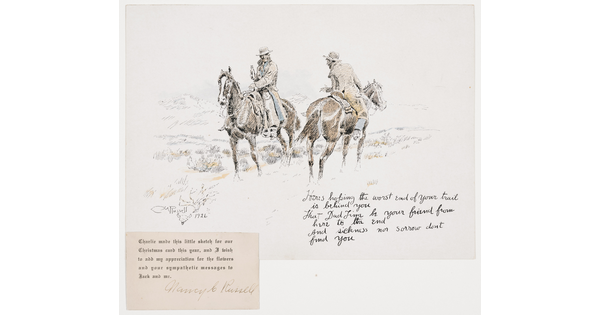 Heres hoping the worst end of your trail
is behind you
That Dad Time be your friend from
here to the end
And sickness nor sorrow dont
find you
1926
Charlie made this little sketch for our
Christmas card this year, and I wish
to add my appreciation for the flowers
and your sympathetic messages to
Jack and me.
Nancy C Russell